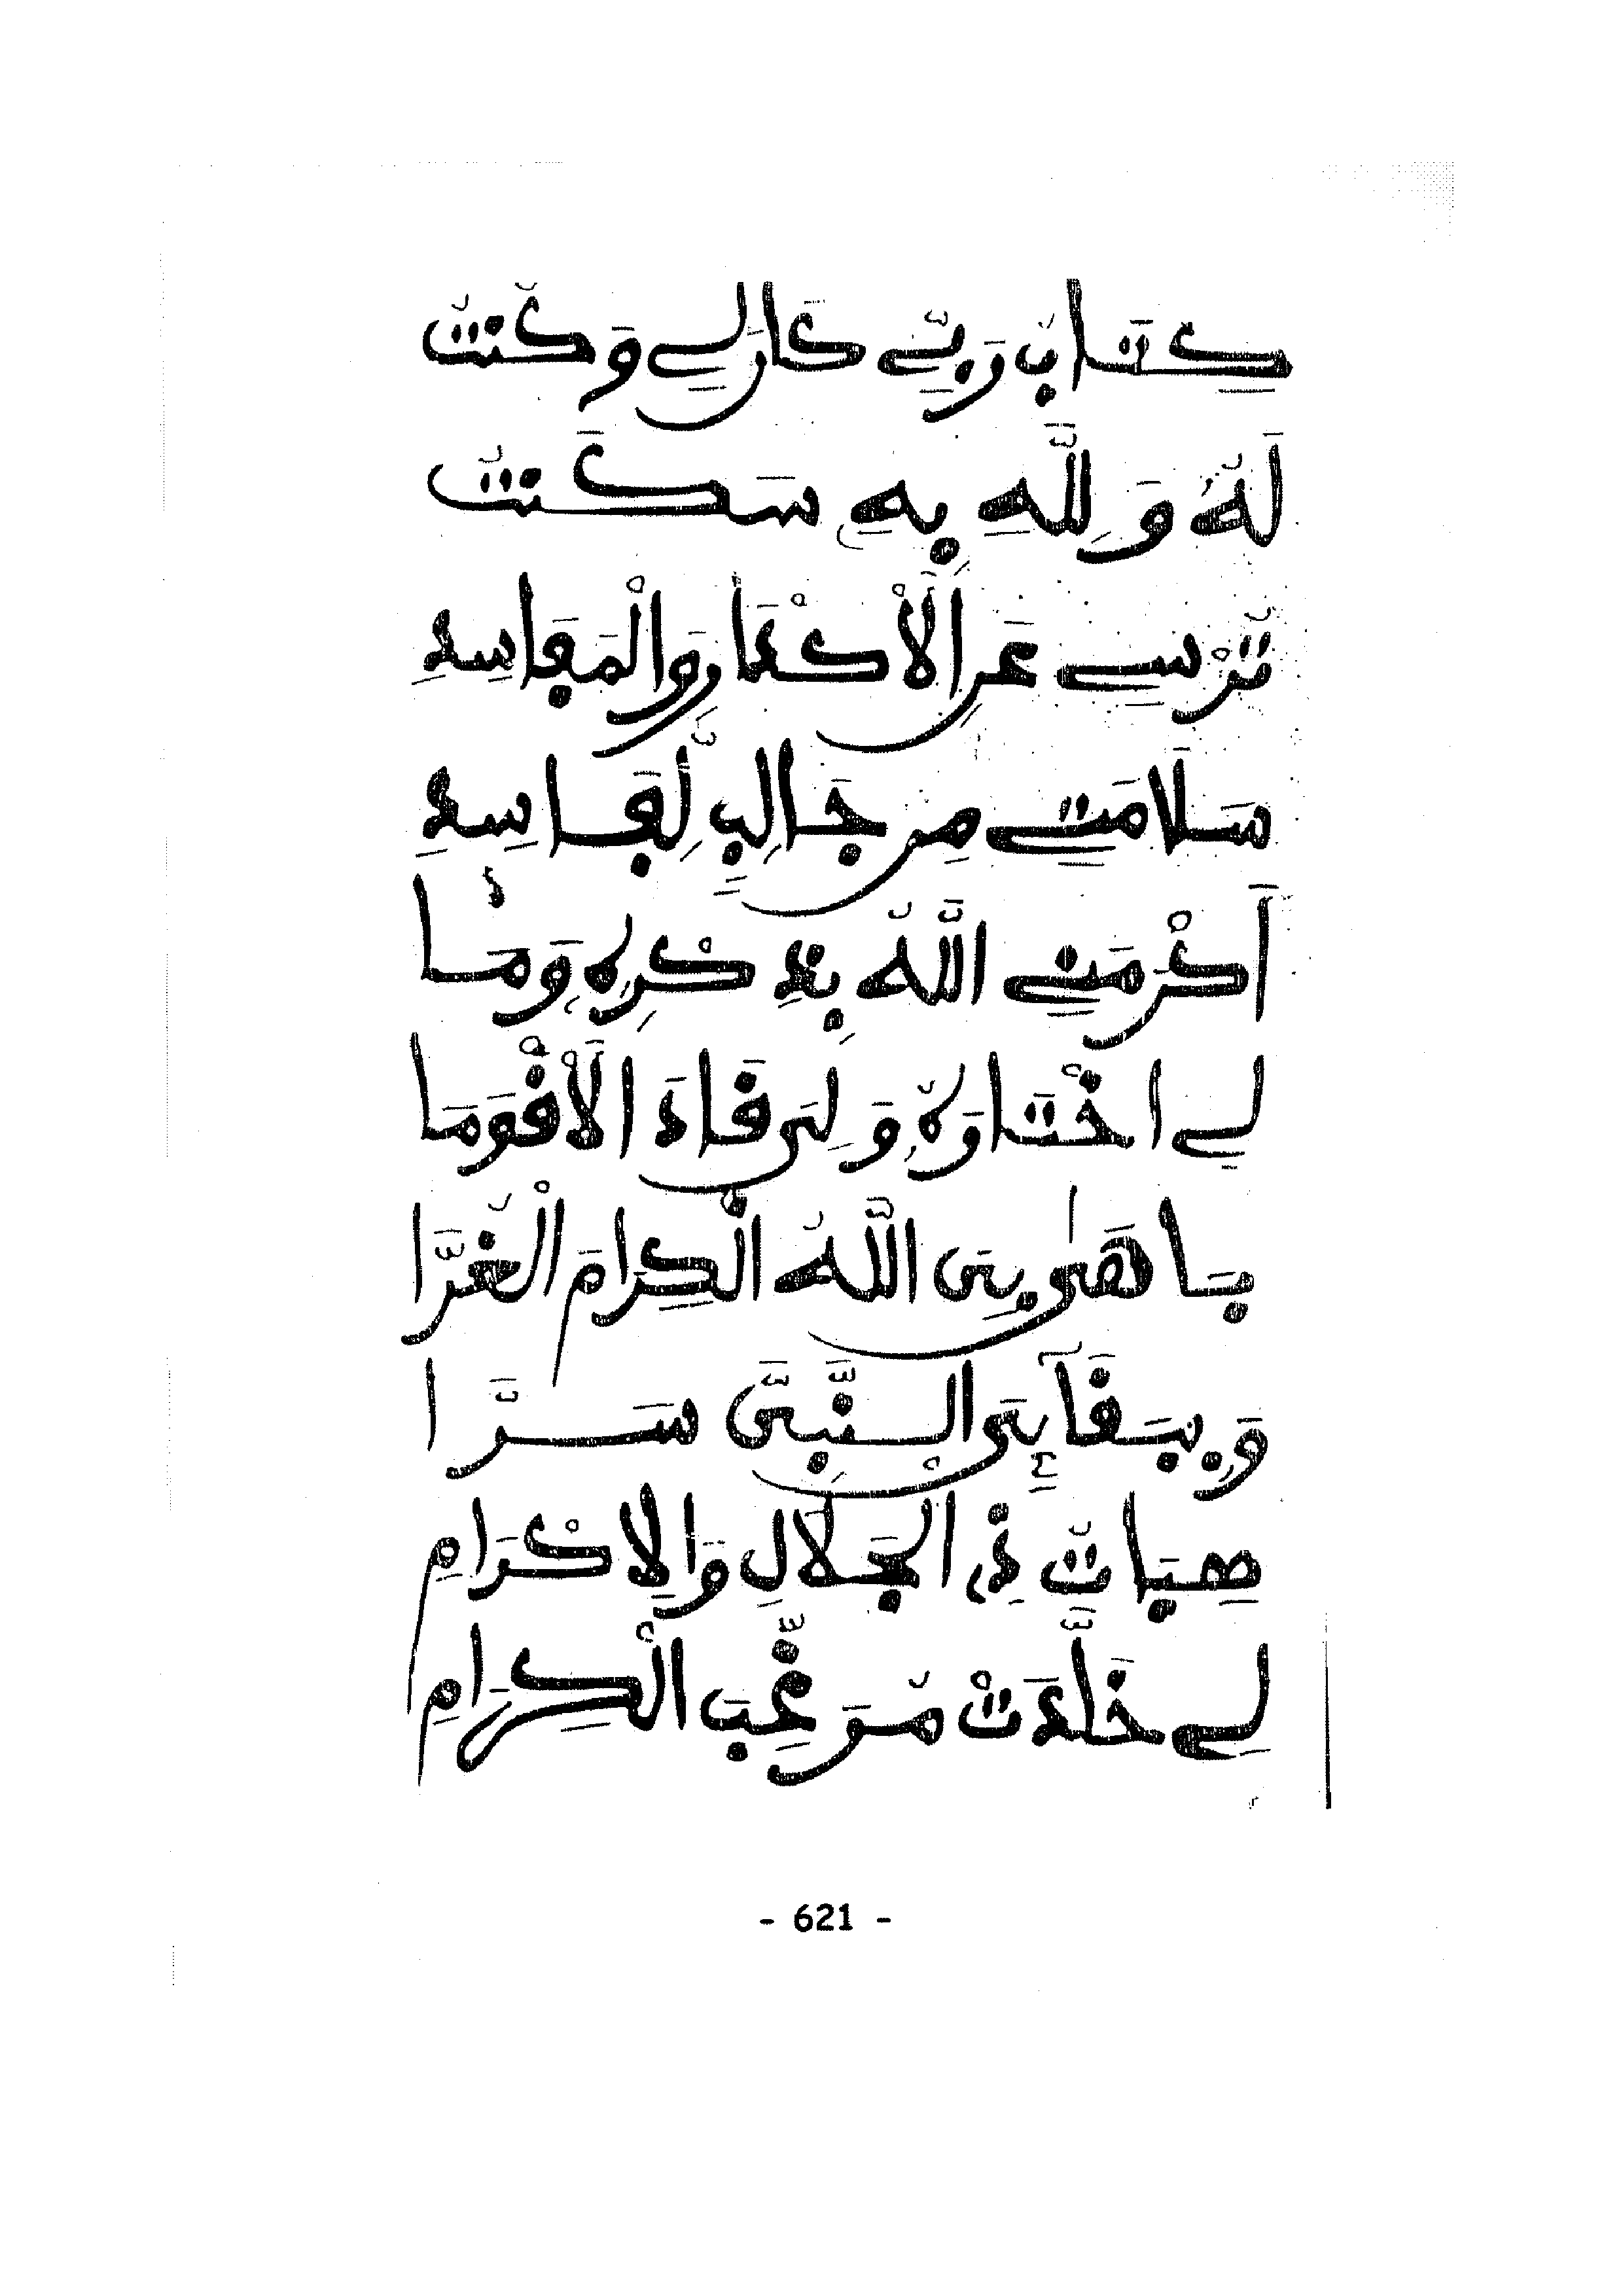 كِتَابُ رَبِّي كَانَ لِي وَكُنْتُ
لَهُ وَلِلَّهِ بِهِ سَكَنْتُ
تُرْسِي عَنِ الْأَكْدَارِ وَالْمَفَاسِدِ
سَلَامَتِي مِنْ جَالِبٍ لِفَاسِدِ
أَكْرَمَنِي اللَّهُ بِذِكْرِهِ وَمَا
لِي اخْتَارَهُ وَلِيَ قَادَ الْأَقْوَمَا
بَاهَى بِيَ اللَّهُ الْكِرَامَ الْغُرَّا
وَبِبَقَاءٍ بِيَ النَّبِيَّ سَرَّا
هِبَاتُ ذِي الْجَلَالِ وَالْإِكْرَامِ
لِي خَلَّدَتْ مُرَغِّبَ الْكِرَامِ
- 621 -